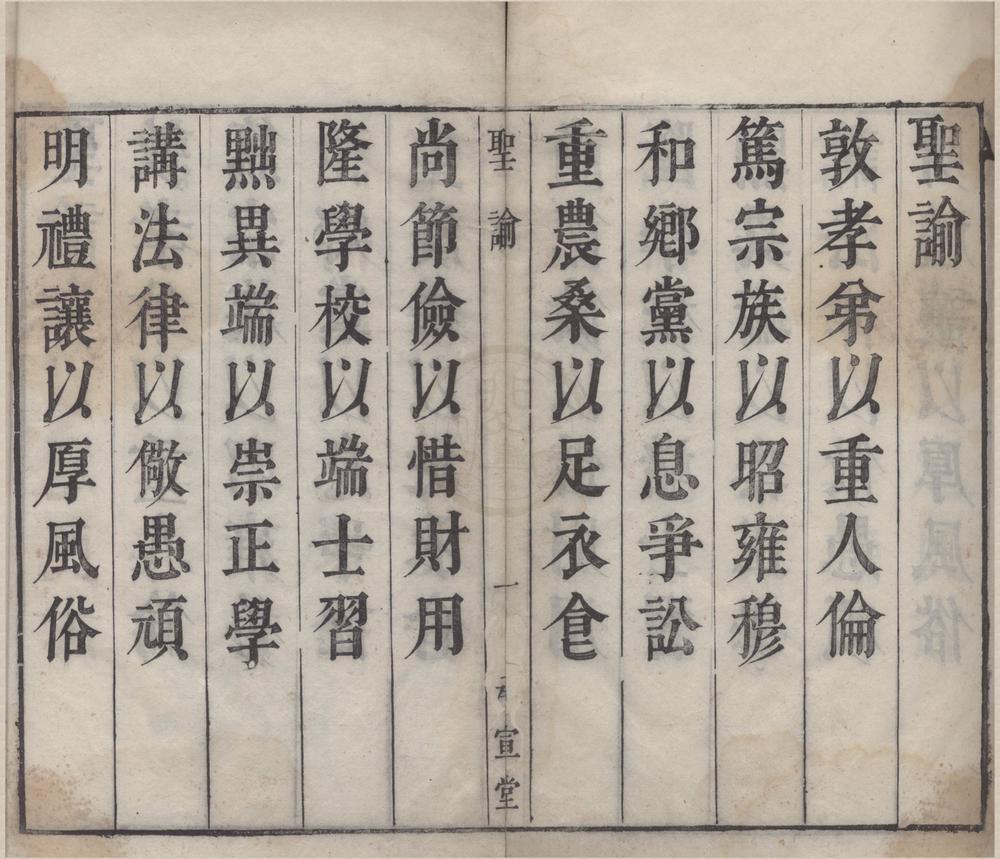 聖諭
敦孝弟以重人倫
篤宗族以昭雍穆
和鄉黨以息爭訟
重農桑以足衣食
聖諭
一
宣堂
尚節儉以惜財用
隆學校以端士習
黜異端以崇正學
講法律以儆愚頑
明禮讓以厚風俗